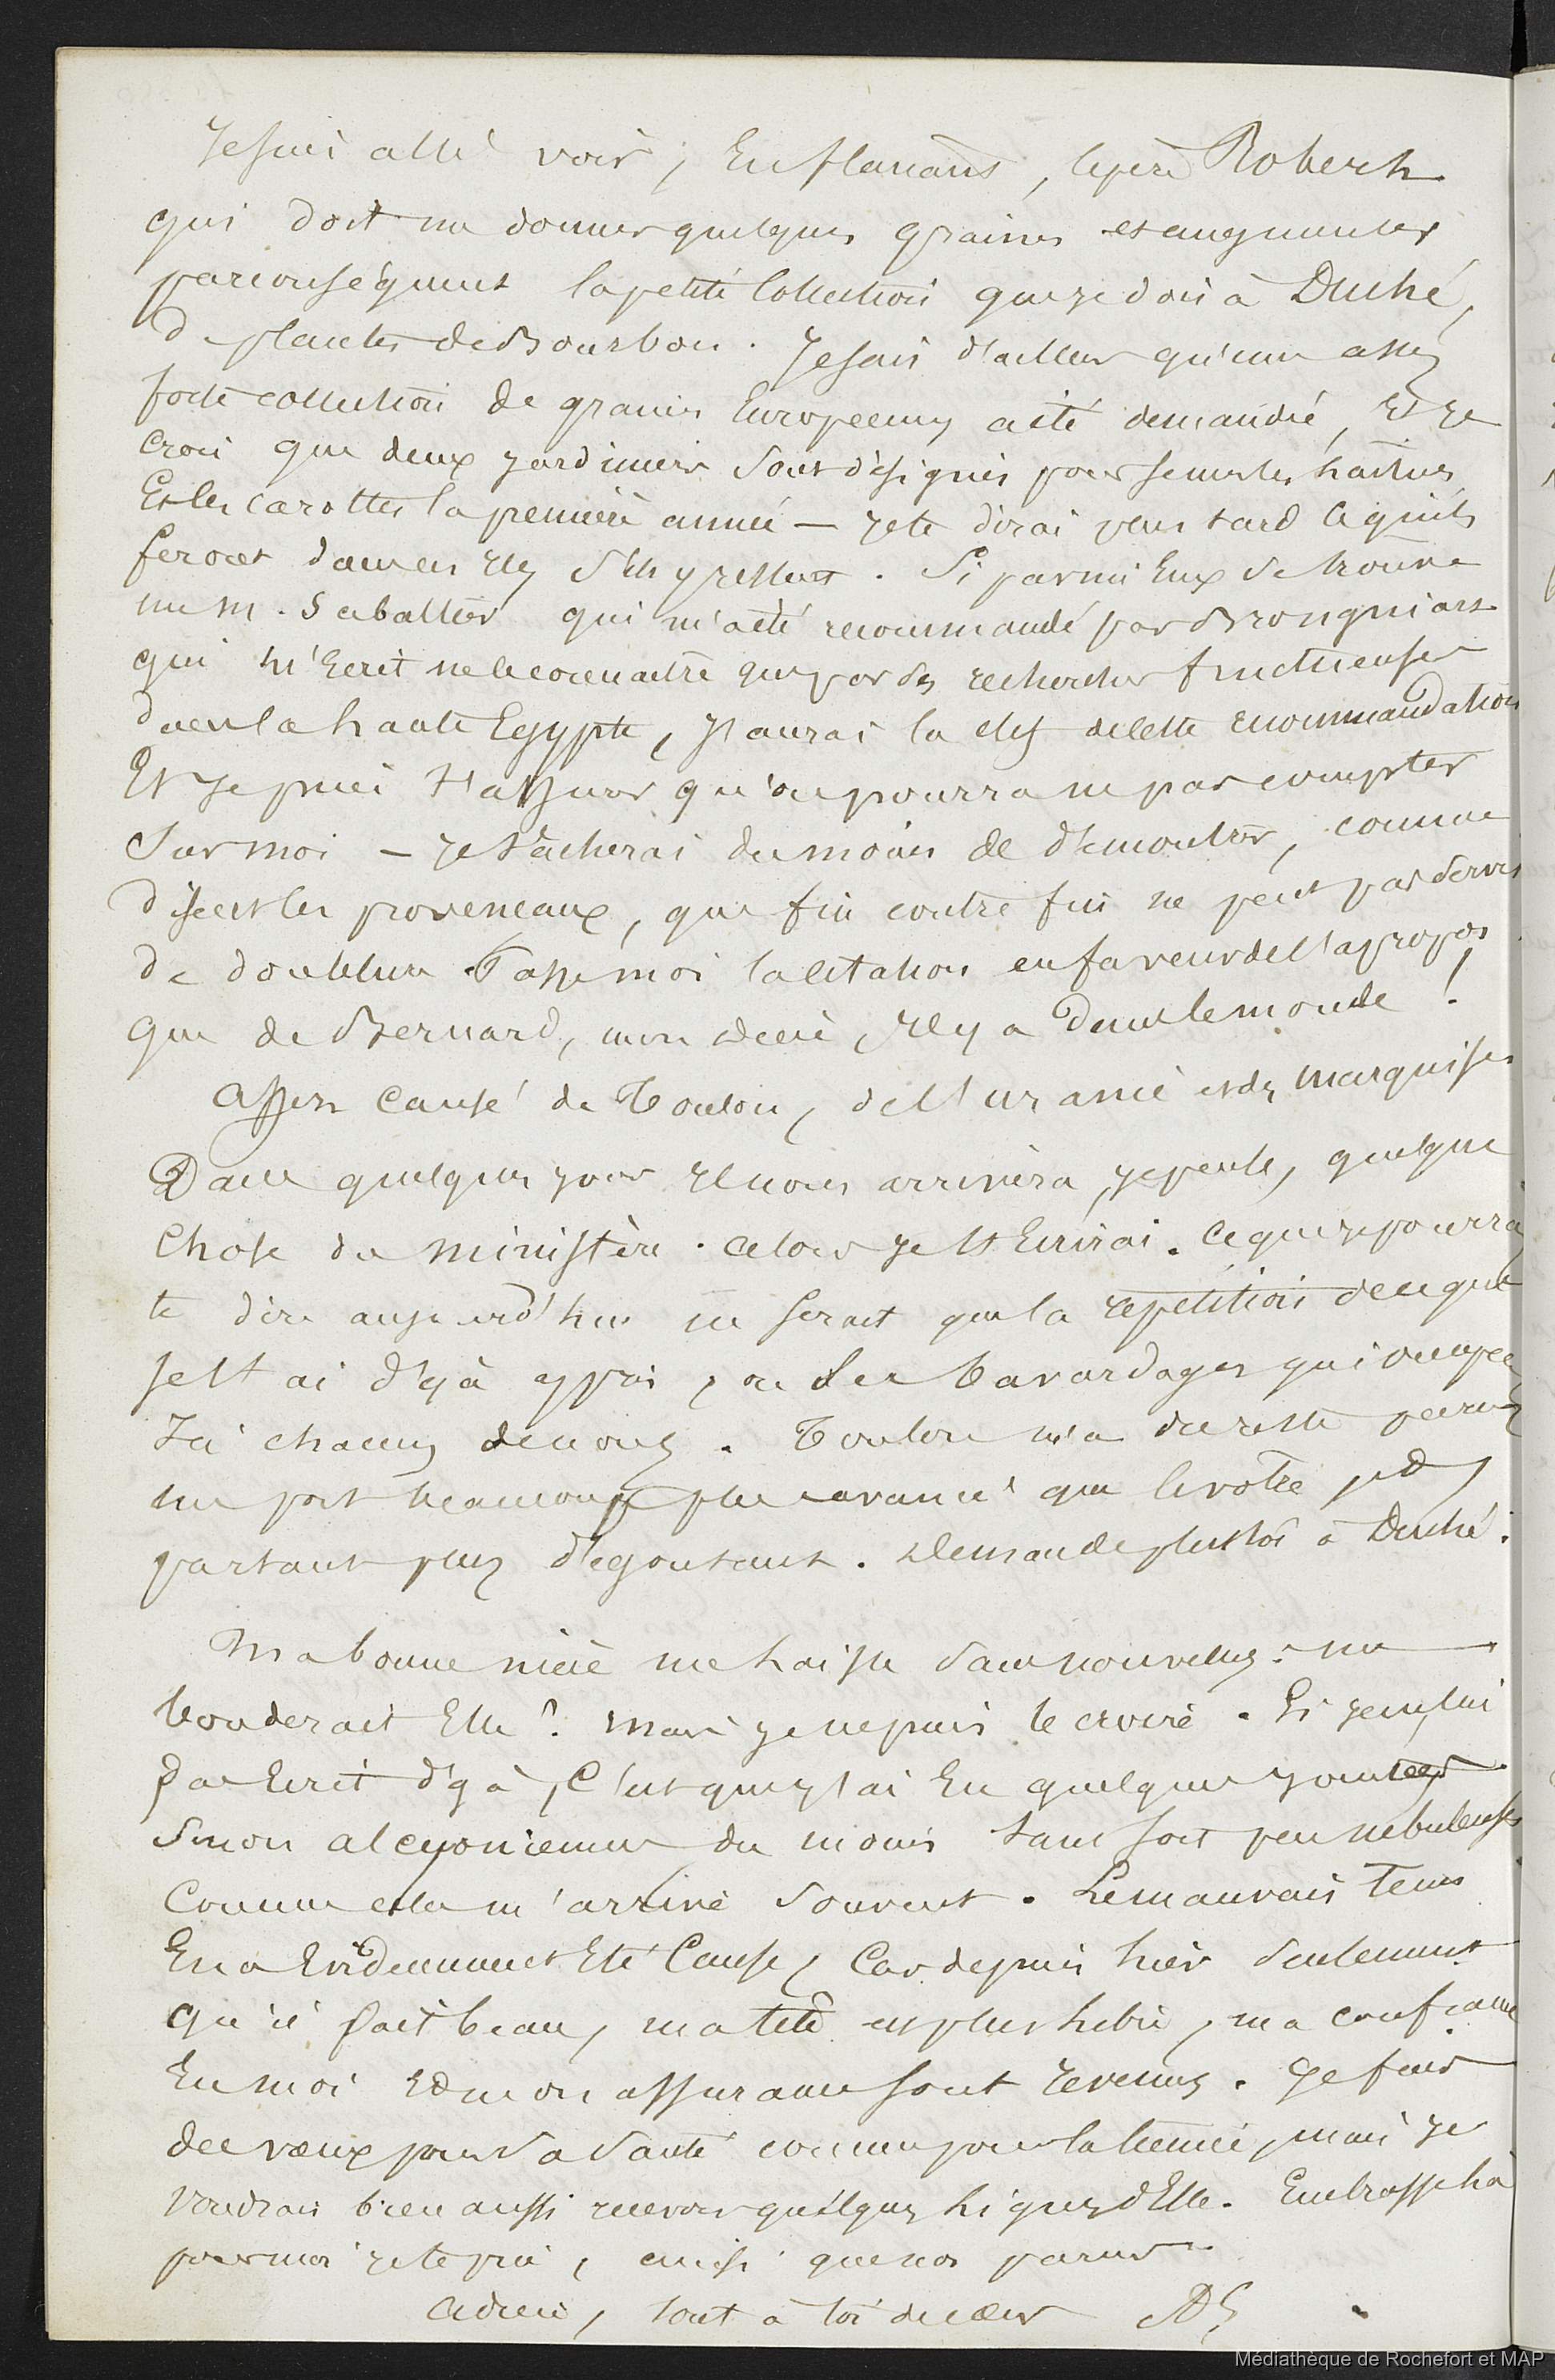 Je suis allé voir, En flanant, le père Robert
qui doit me donner quelques graines et augmenter
par conséquent la petite Collection que je dois à Duché,
de plantes de Bourbon. Je sais d'ailleurs qu'une assez
forte collection de graines Européennes a été demandée, Et je
crois que deux jardiniers sont désignés pour semer les haricots
Et les carottes la première année — je te dirai plus tard ce qu'ils
feront dans les s'ils y restent. Si parmi Eux se trouve
un M. Sabattier qui m'a été recommandé par Brongniart
qui m'Ecrit ne le connaitre que par des recherches fructueuses
dans la haute Egypte, j'aurai la clef de cette recommandation
Et je puis t'assurer qu'on pourra ne pas compter
sur moi — je tâcherai du moins de démontrer, comme
disent les provençaux, que fin contre fin ne peut pas servir
de doublure. Passe moi la citation en faveur de l'apropos
que de Bernard, mon dieu, Il y a dans le monde !
Assez Causé de Toulon, de l'Uranie et des Marquises
Dans quelques jours Il nous arrivera, je pense, quelque
chose du ministère. alors je t'Ecrirai. Ce que je pourrai
te dire aujourd'hui ne serait que la répétition de ce que
je t'ai déjà appris, ou des bavardages qui occupent
Ici chacun de nous. Toulon m'a du reste paru
un port beaucoup plus avancé que le votre
partant plus dégoutant. Demande plustot à Duché.
Ma bonne mère me laisse sans nouvelles. me
bouderait Elle ? mais je ne puis le croire. Si je ne lui
pas Ecrit déjà, C'est que j'ai Eu quelques journées
sinon alcyoniennes du moins tant soit peu nébuleuses
Comme cela m'arrive souvent. Le mauvais tems
En a Evidemment Eté Cause, Car depuis hier seulement
qu'il fait beau, ma tête est plus libre, ma confiance
En moi Et mon assurance sont revenus. Je fais
des vœux pour sa santé comme pour la tienne, mais je
voudrais bien aussi recevoir quelques lignes d'Elle. Embrasse la
pour moi je te prie, ainsi que nos parens
adieu, tout à toi de cœur
Médiathèque de Rochefort et MAP